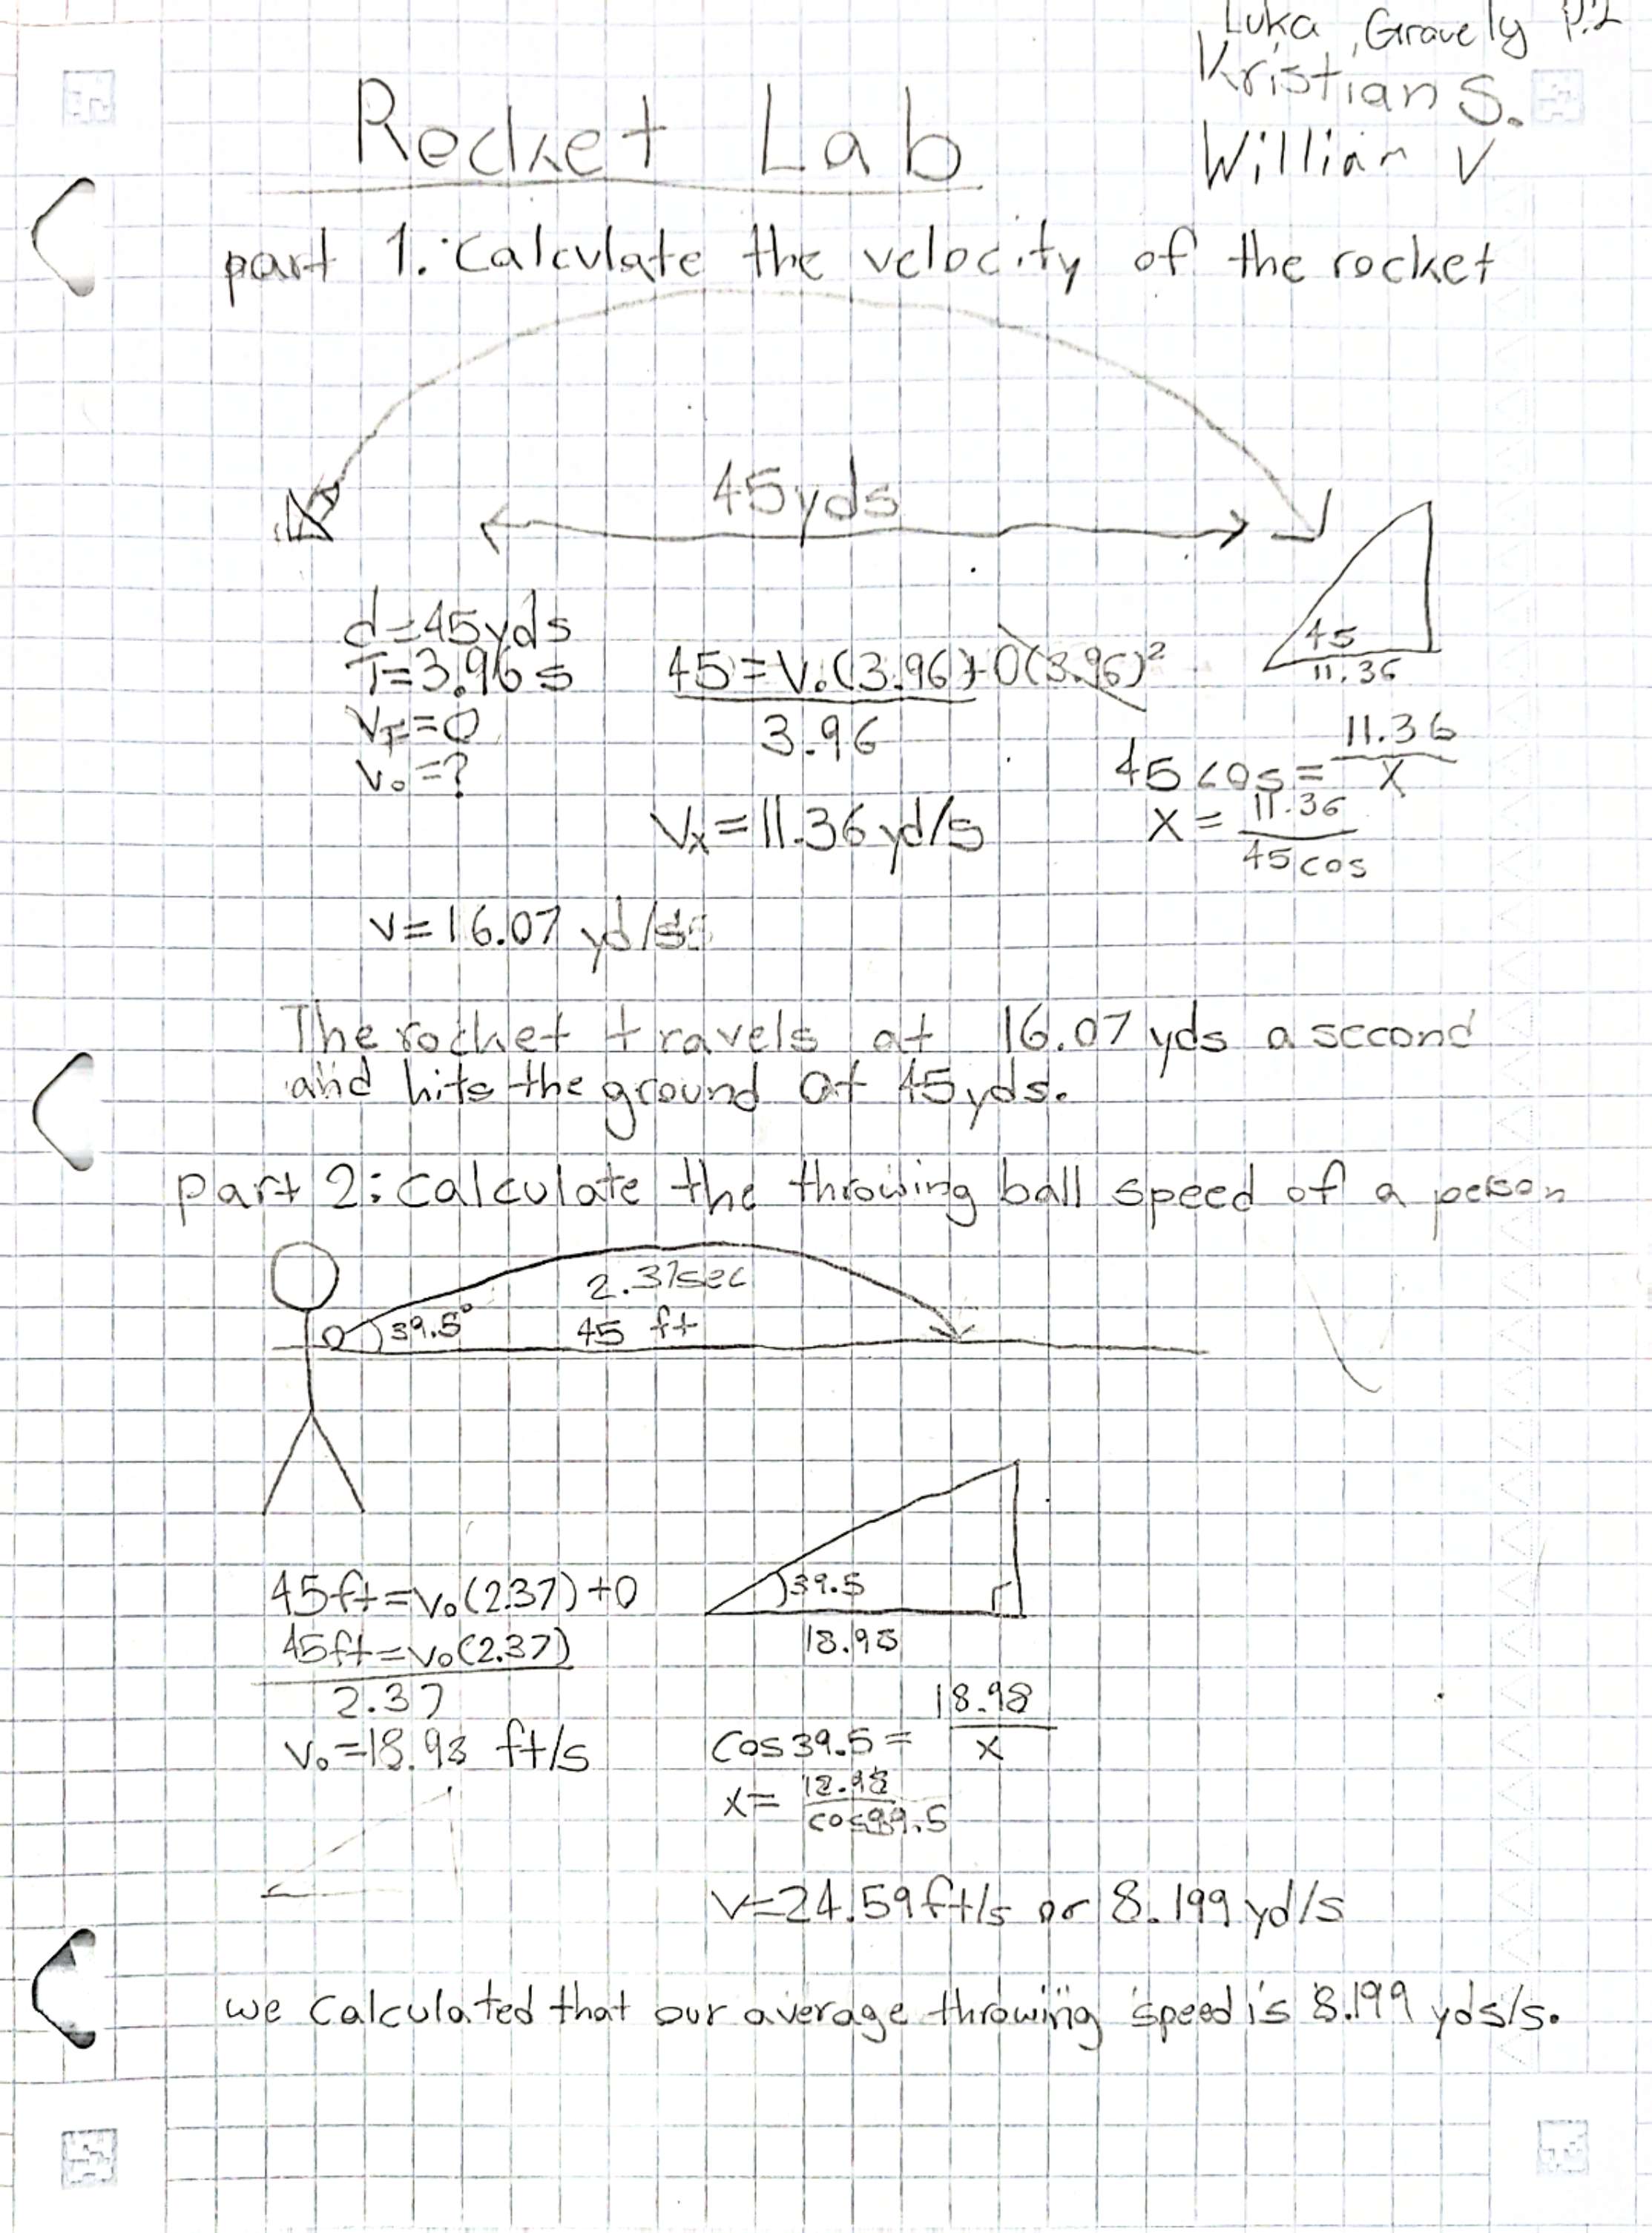 Luka, Gravely P.2
Kristian S.
William V
Rocket Lab
part 1: Calculate the velocity of the rocket
45yds
d=45yds
T=3.96s
VF=0
V₀=?
45=V₀(3.96)+0(3.96)²
3.96
Vx=11.36yd/s
45
11.36
45cos=11.36/X
X=11.36/45cos
V=16.07 yd/s
The rocket travels at 16.07yds a second
and hits the ground at 45yds.
part 2: calculate the throwing ball speed of a person
2.37sec
39.5°
45 ft
45ft=V₀(2.37)+0
45ft=V₀(2.37)
2.37
V₀=18.98 ft/s
39.5
18.98
cos39.5=18.98/X
X=18.98/cos39.5
V=24.59ft/s or 8.199yd/s
we calculated that our average throwing speed is 8.199 yds/s.